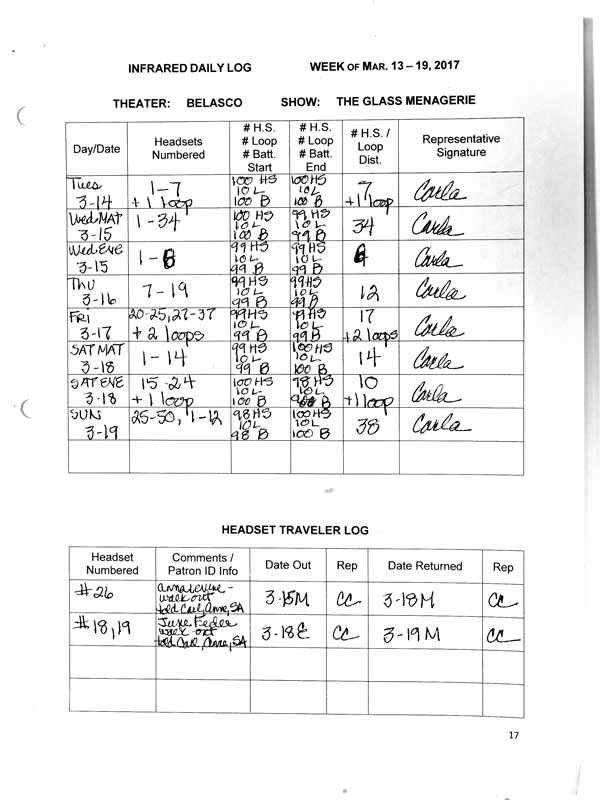 INFRARED DAILY LOG WEEK OF MAR. 13 – 19, 2017
THEATER: BELASCO SHOW: THE GLASS MENAGERIE
Day/Date Headsets Numbered # H.S. # Loop # Batt. Start # H.S. # Loop # Batt. End # H.S. / Loop Dist. Representative Signature
Tues 3-14 1-7 +1 loop 100 HS 10 L 100 B 100 HS 10 L 100 B 7 +1 loop Carla
Wed MAT 3-15 1-34 100 HS 10 L 100 B 99 HS 10 L 99 B 34 Carla
Wed EVE 3-15 1-6 99 HS 10 L 99 B 99 HS 10 L 99 B 6 Carla
THU 3-16 7-19 99 HS 10 L 99 B 99 HS 10 L 99 B 12 Carla
FRI 3-17 20-25, 27-37 +2 loops 99 HS 10 L 99 B 99 HS 10 L 99 B 17 +2 loops Carla
SAT MAT 3-18 1-14 99 HS 10 L 99 B 100 HS 10 L 100 B 14 Carla
SAT EVE 3-18 15-24 +1 loop 100 HS 10 L 100 B 98 HS 10 L B 10 +1 loop Carla
SUN 3-19 25-50, 1-12 98 HS 10 L 98 B 100 HS 10 L 100 B 38 Carla
HEADSET TRAVELER LOG
Headset Numbered Comments / Patron ID Info Date Out Rep Date Returned Rep
#26 Anna Levine - walk out told Carl, Anne, SA 3-15M CC 3-18M CC
#18,19 June Feder walk-out told Carl, Anne, SA 3-18E CC 3-19M CC
17